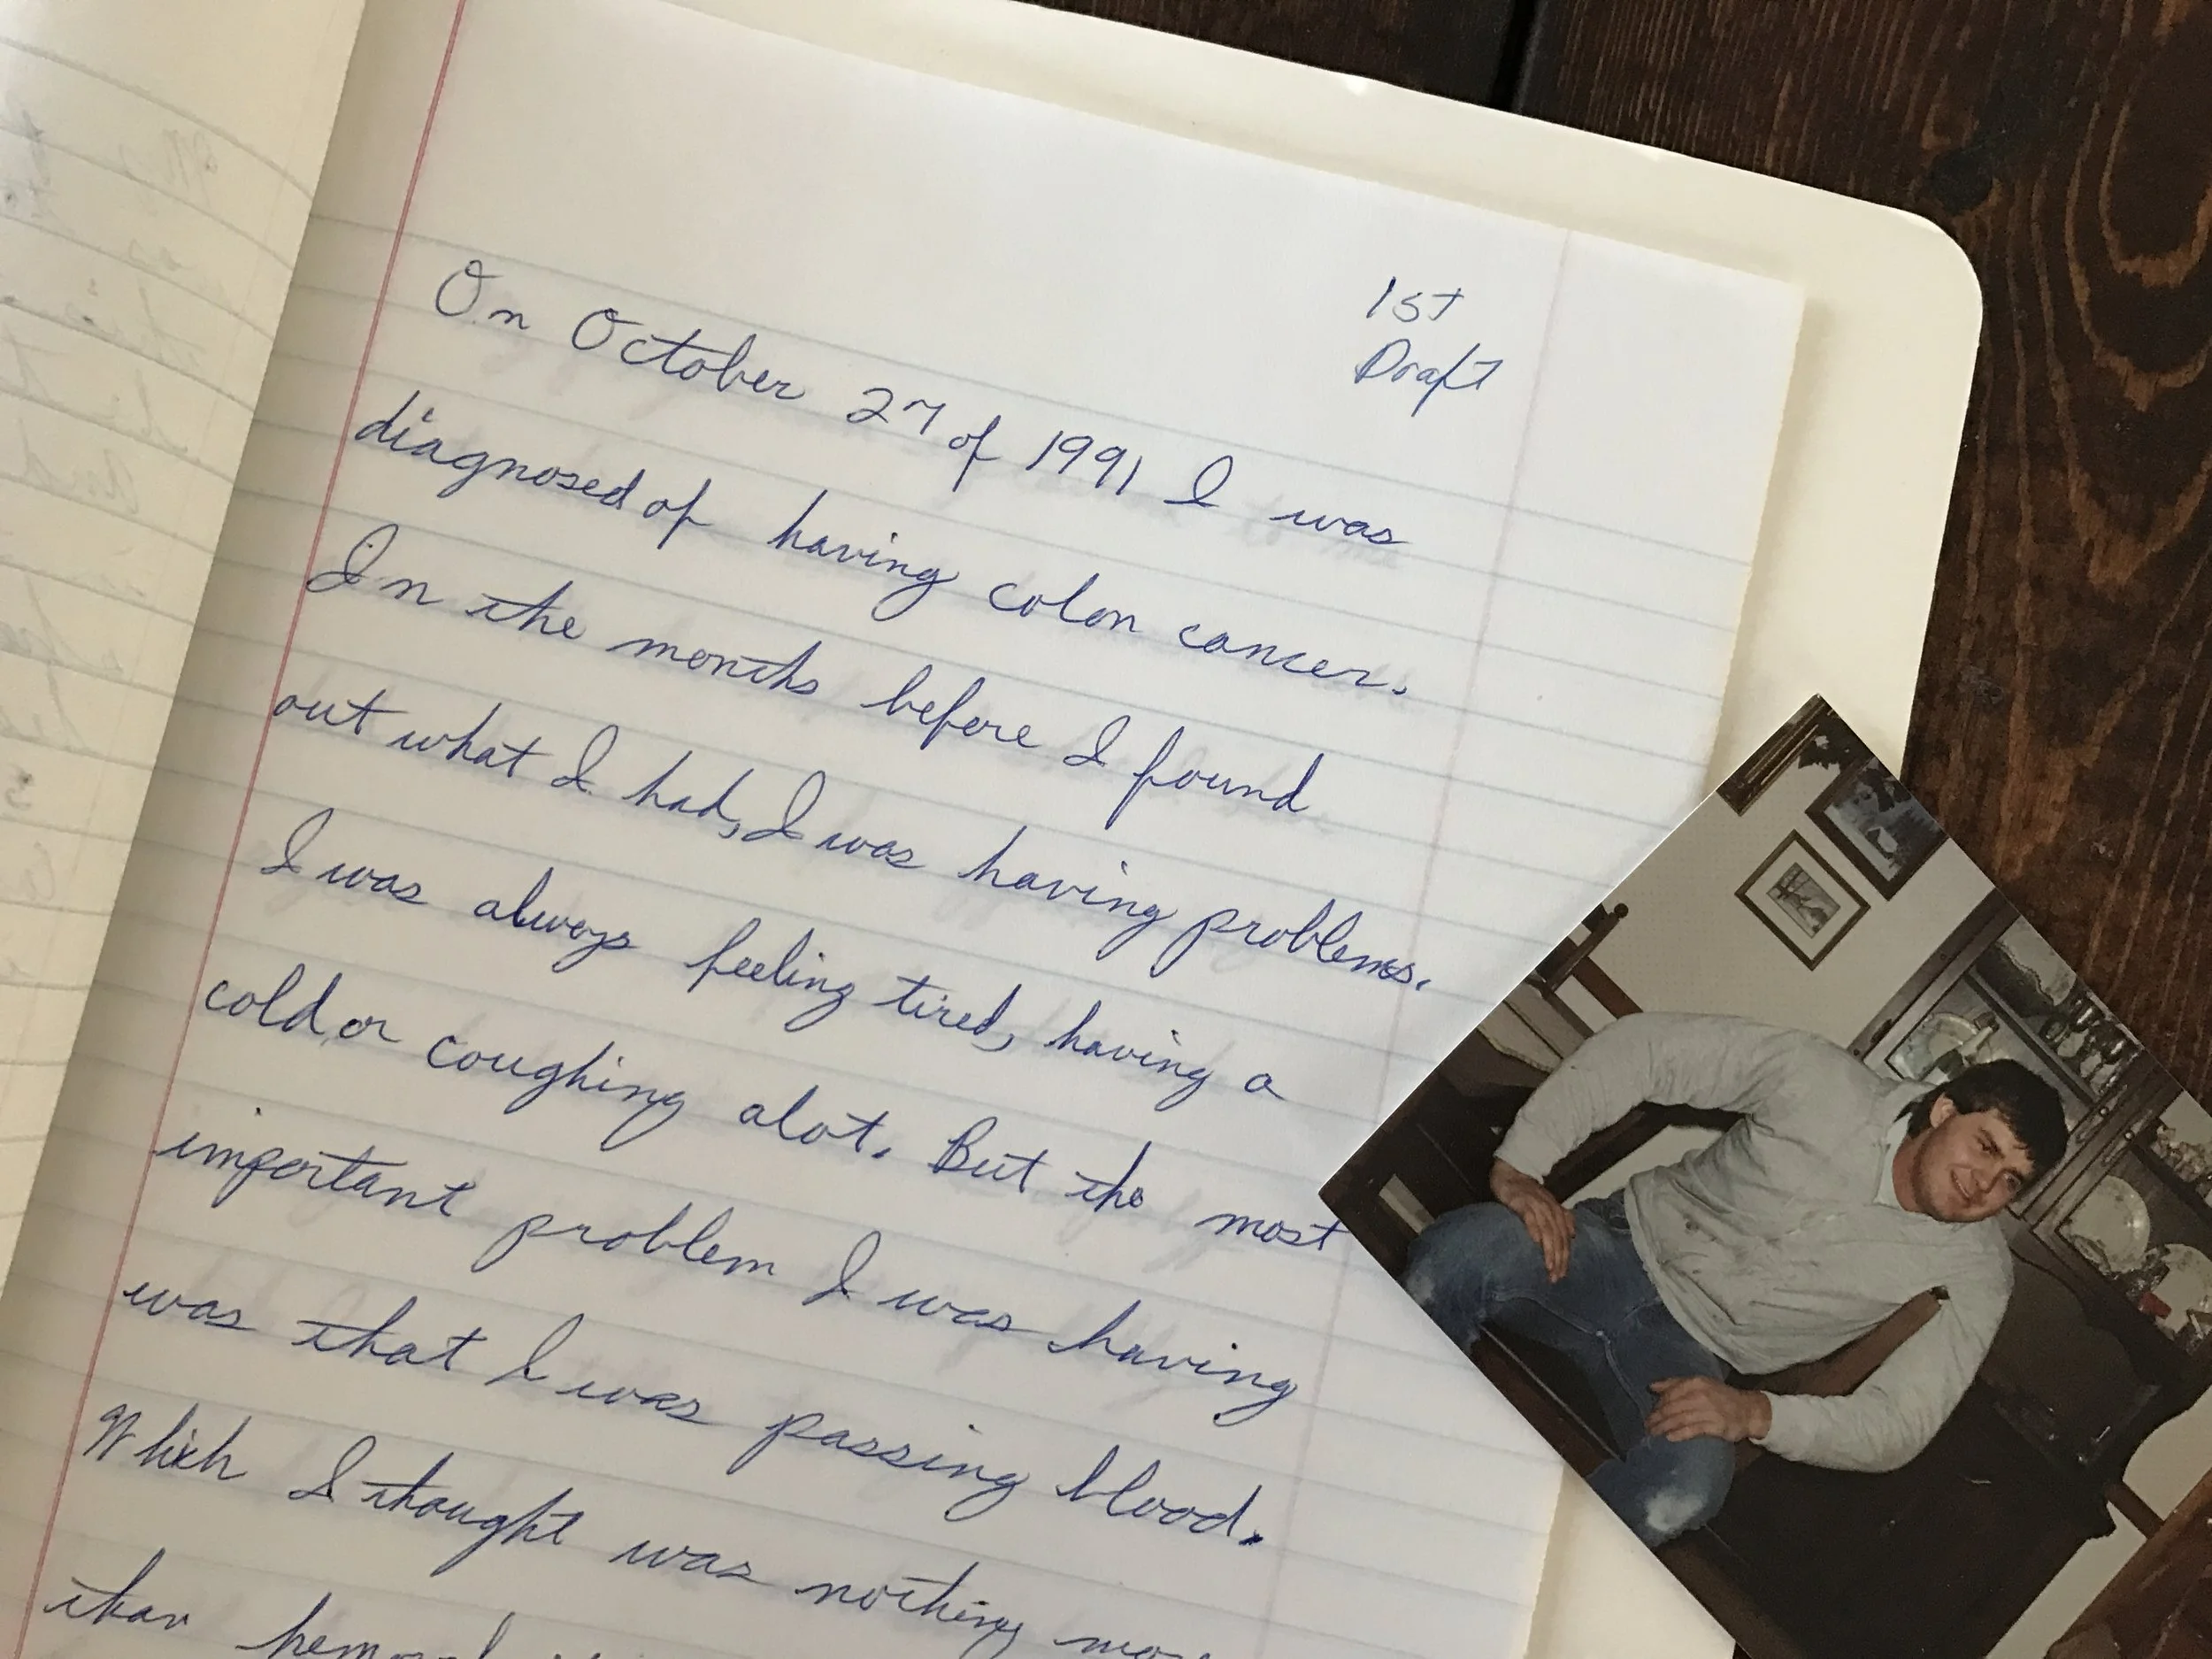 1st
Draft
On October 27 of 1991 I was
diagnosed of having colon cancer.
In the months before I found
out what I had, I was having problems.
I was always feeling tired, having a
cold, or coughing alot. But the most
important problem I was having
was that I was passing blood.
Which I thought was nothing
than